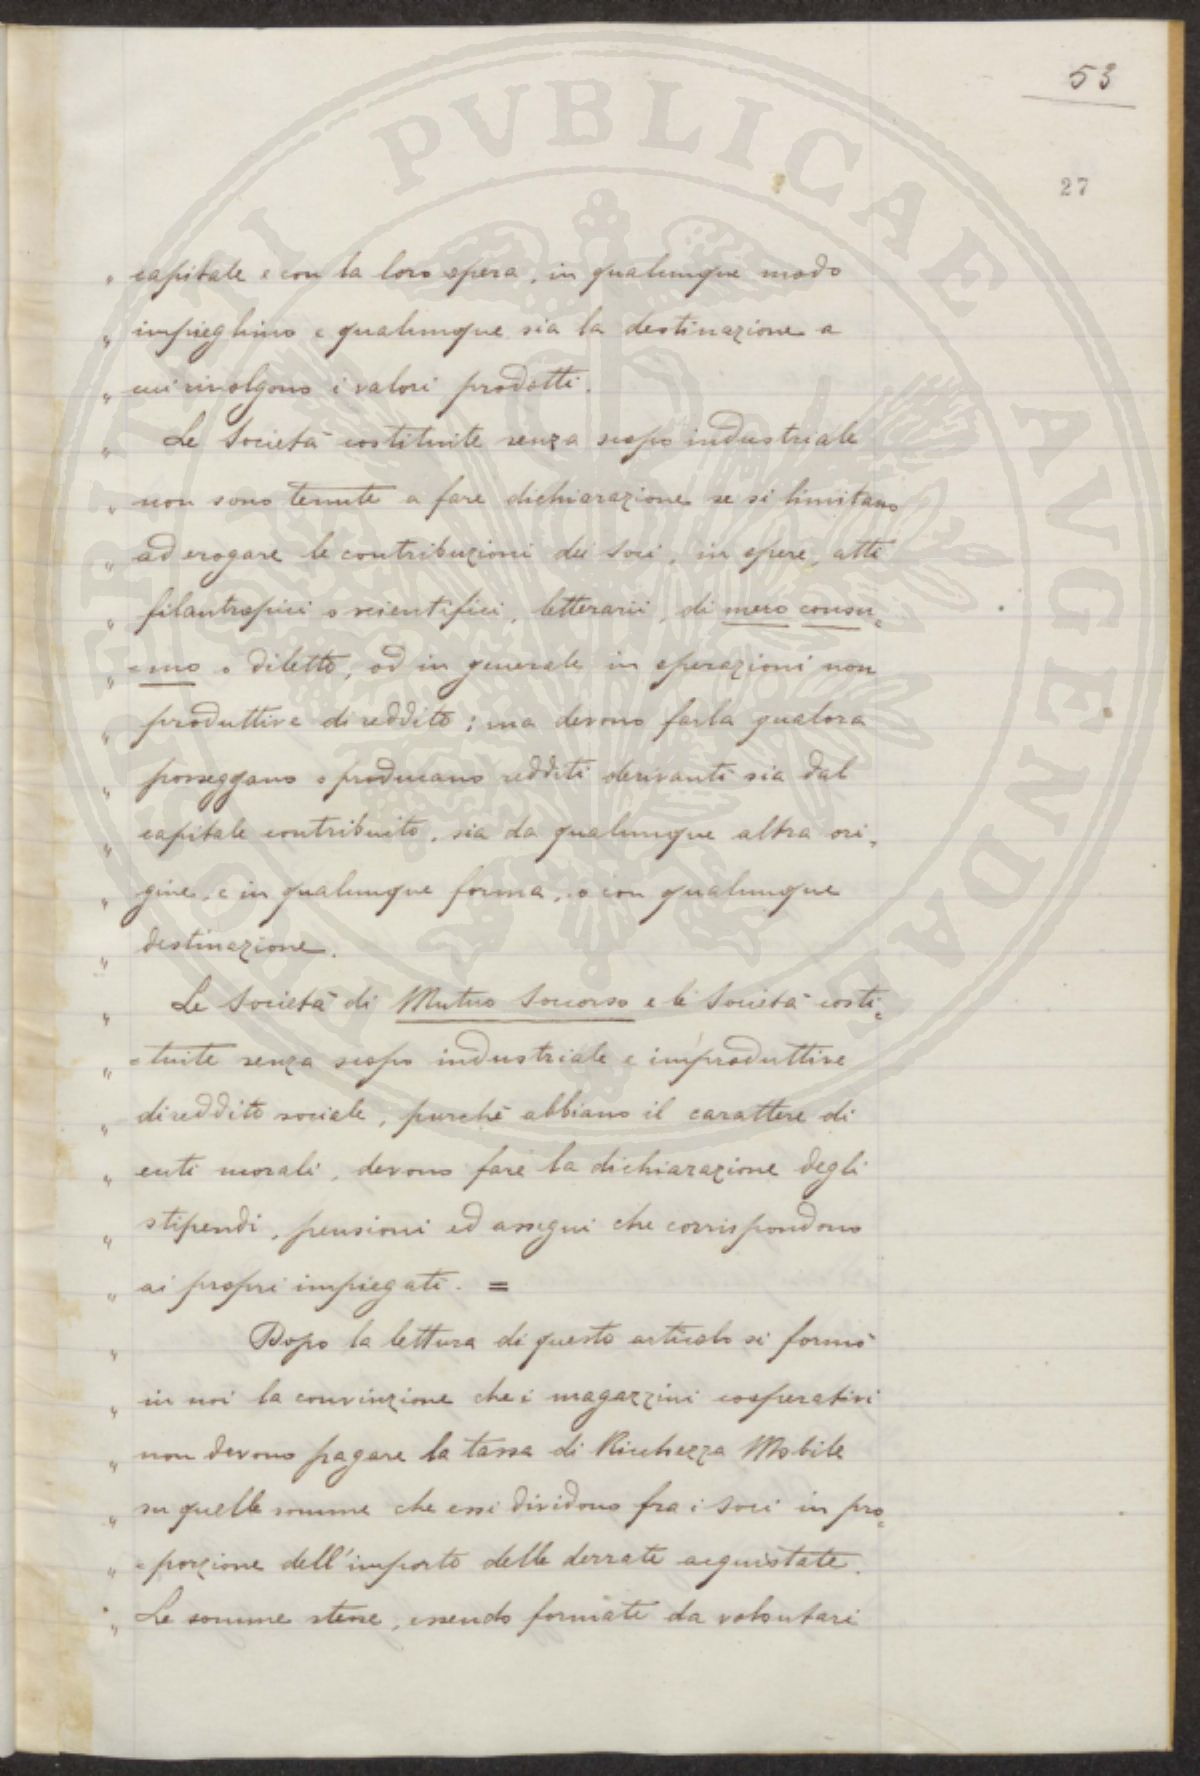 53
27
" capitale e con la loro opera, in qualunque modo
" impieghino e qualunque sia la destinazione a
" cui rivolgono i valori prodotti.
" Le Società costituite senza scopo industriale
" non sono tenute a fare dichiarazione se si limitano
" ad erogare le contribuzioni dei soci, in opere, atti
" filantropici o scientifici, letterarii, di mero consu=
" =mo o diletto, od in generale in operazioni non
" produttive di reddito; ma devono farla qualora
" posseggano o producano redditi derivanti sia dal
" capitale contribuito, sia da qualunque altra ori=
" gine, e in qualunque forma, o con qualunque
" destinazione.
" Le Società di Mutuo Soccorso e le Società costi=
" =tuite senza scopo industriale e improduttive
" di reddito sociale, purchè abbiano il carattere di
" enti morali, devono fare la dichiarazione degli
" stipendi, pensioni ed assegni che corrispondono
" ai propri impiegati. =
" Dopo la lettura di questo articolo si formò
" in noi la convinzione che i magazzini cooperativi
" non devono pagare la tassa di Ricchezza Mobile
" su quelle somme che essi dividono fra i soci in pro=
" =porzione dell'importo delle derrate acquistate.
" Le somme stesse, essendo formate da volontari
PVBLICAE AVGENDAE